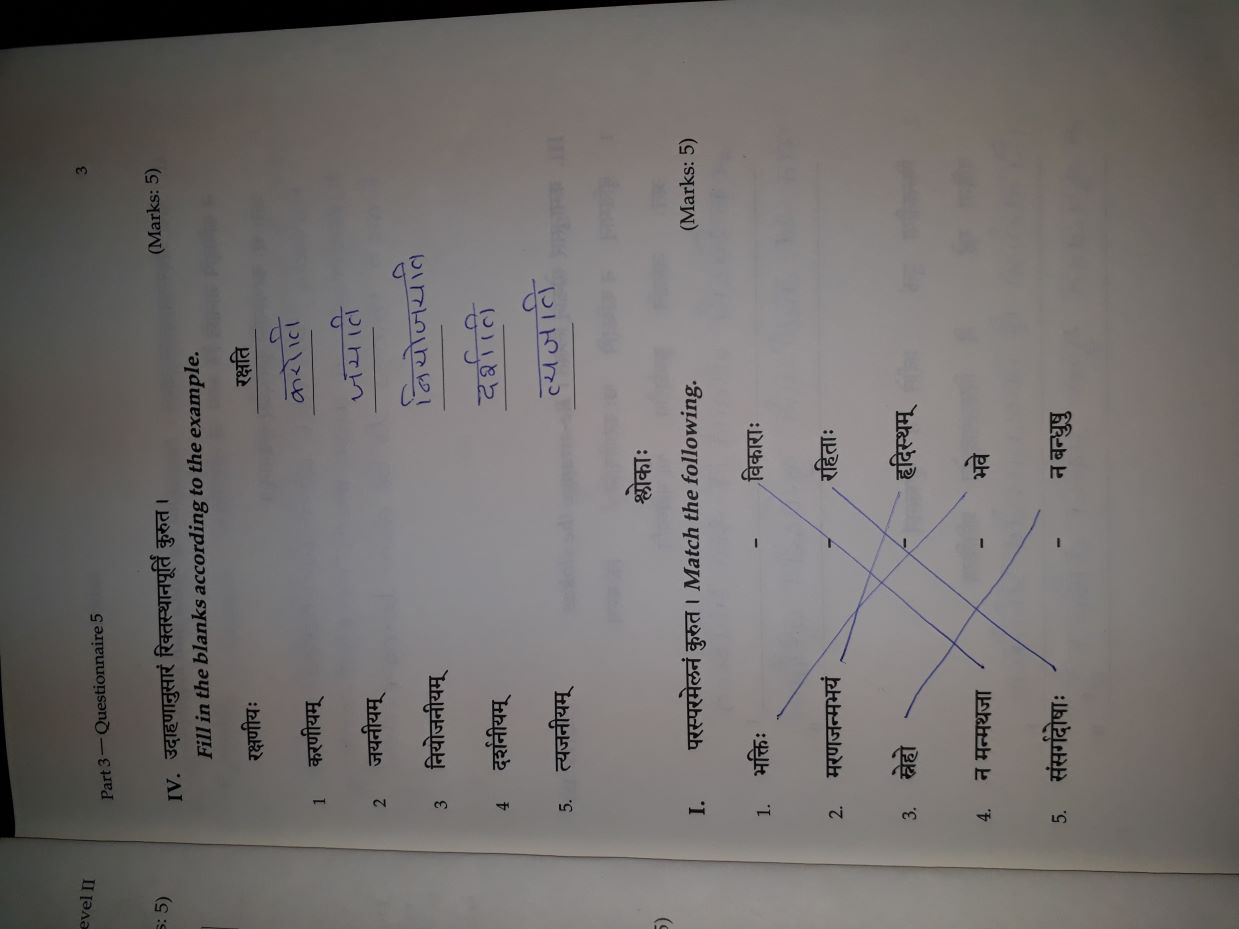 evel II
s: 5)
5)
Part 3 — Questionnaire 5
3
IV. उदाहणानुसारं रिक्तस्थानपूर्तिं कुरुत। (Marks: 5)
Fill in the blanks according to the example.
रक्षणीयः रक्षति
1 करणीयम् करोति
2 जयनीयम् जयाति
3 नियोजनीयम् नियोजयति
4 दर्शनीयम् दर्शाति
5. त्यजनीयम् त्यजाति
श्लोकाः
I. परस्परमेलनं कुरुत। Match the following. (Marks: 5)
1. भक्तिः - विकाराः
2. मरणजन्मभयं - रहिताः
3. स्नेहो - हृदिस्थम्
4. न मन्मथजा - भवे
5. संसर्गदोषाः - न बन्धुषु